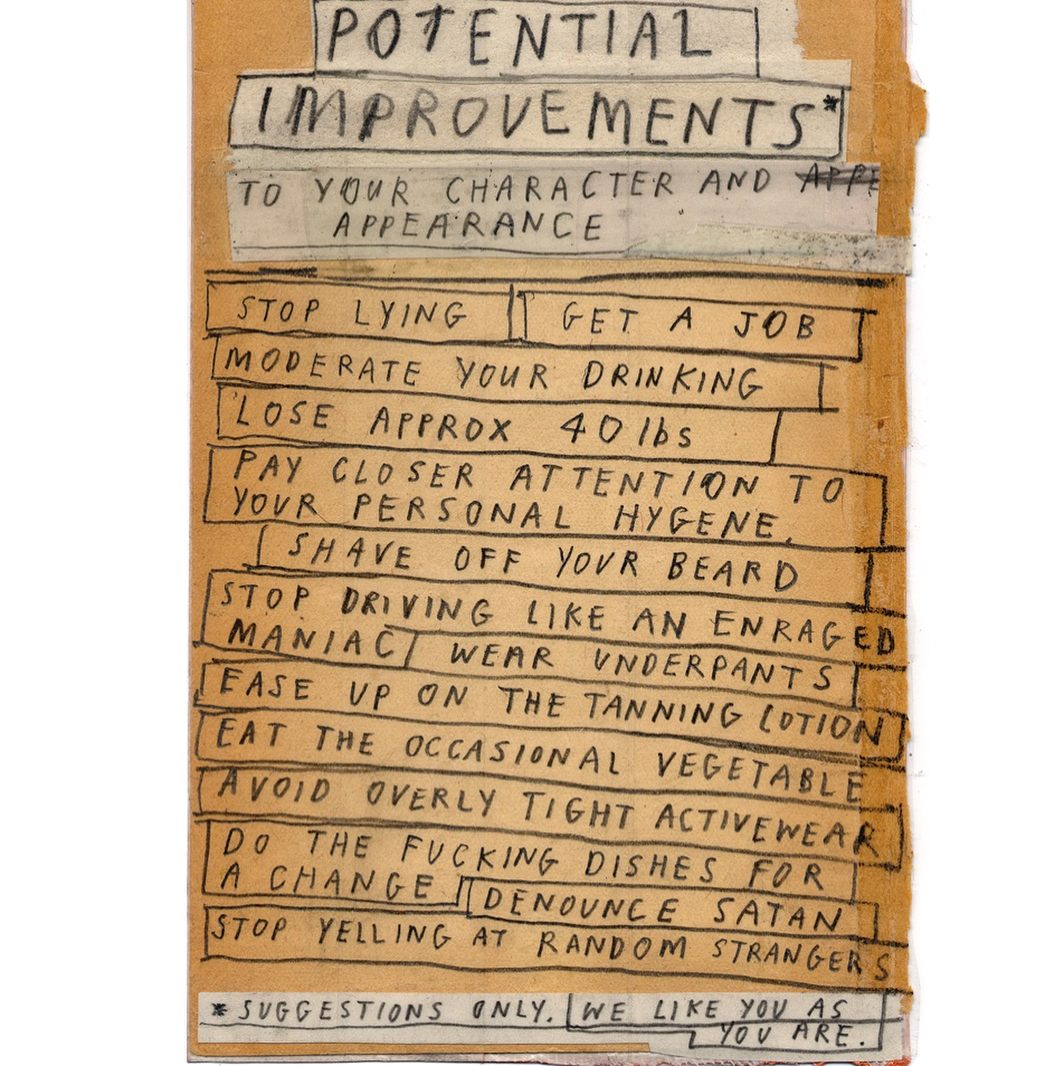 POTENTIAL
IMPROVEMENTS*
TO YOUR CHARACTER AND APPE
APPEARANCE
STOP LYING GET A JOB
MODERATE YOUR DRINKING
LOSE APPROX 40 lbs
PAY CLOSER ATTENTION TO
YOUR PERSONAL HYGENE.
SHAVE OFF YOUR BEARD
STOP DRIVING LIKE AN ENRAGED
MANIAC WEAR UNDERPANTS
EASE UP ON THE TANNING LOTION
EAT THE OCCASIONAL VEGETABLE
AVOID OVERLY TIGHT ACTIVEWEAR
DO THE FUCKING DISHES FOR
A CHANGE DENOUNCE SATAN
STOP YELLING AT RANDOM STRANGERS
*SUGGESTIONS ONLY. WE LIKE YOU AS
YOU ARE.